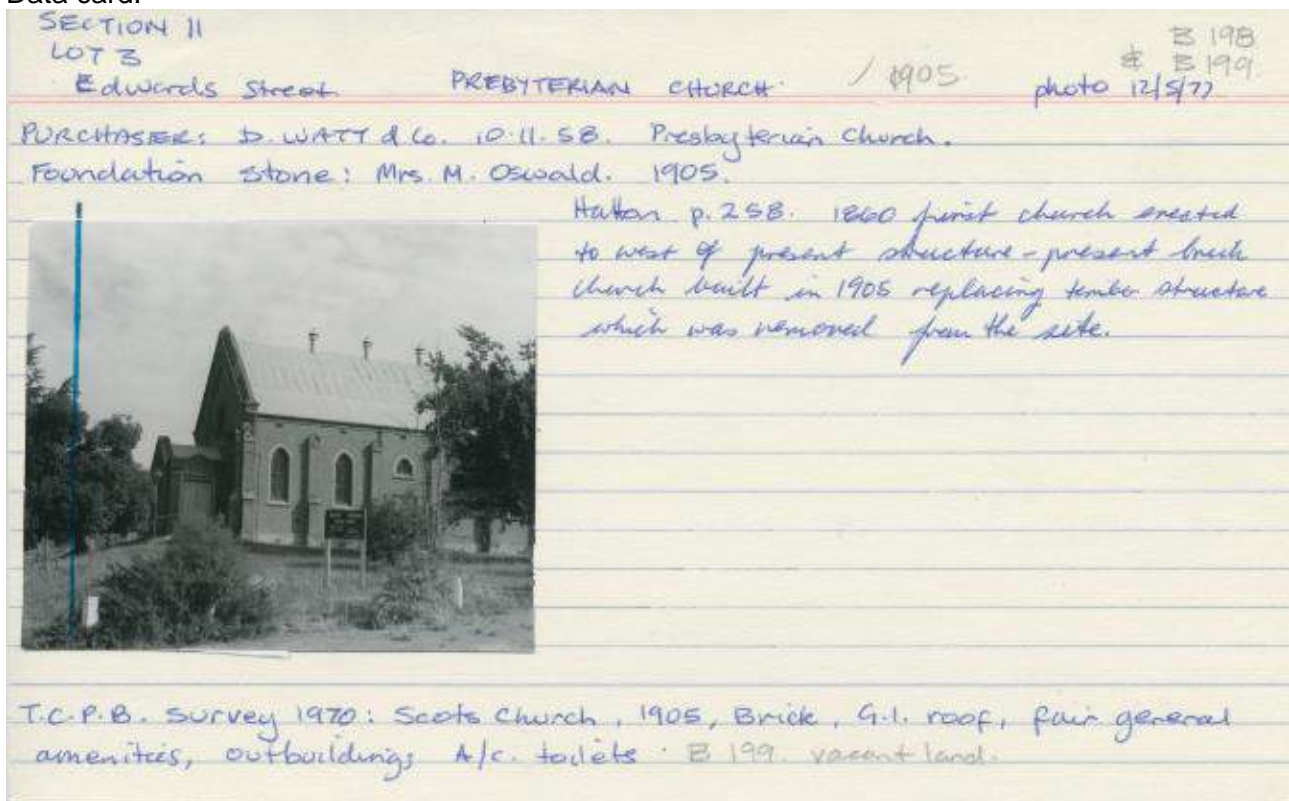 Data card:
SECTION 11
LOT 3
Edwards Street PREBYTERIAN CHURCH. / 1905.
B 198
& B 199.
photo 12/5/77
PURCHASER: D. WATT & Co. 10.11.58. Presbyterian Church.
Foundation Stone: Mrs. M. Oswald. 1905.
Hatton p. 258. 1860 first church erected
to west of present structure - present brick
church built in 1905 replacing timber structure
which was removed from the site.
T.C.P.B. Survey 1970: Scots Church, 1905, Brick, G.I. roof, fair general
amenities, outbuildings A/c. toilets. B 199. vacant land.